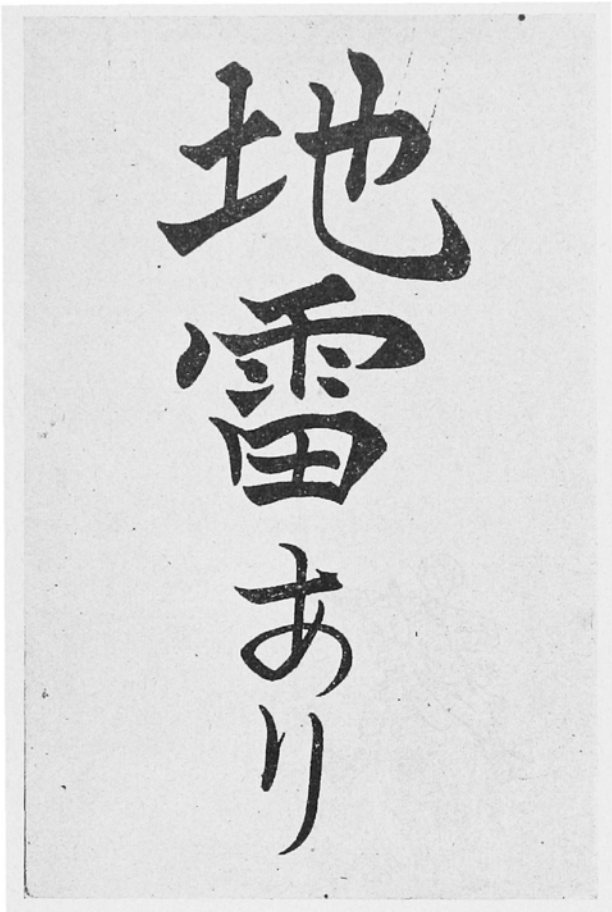 地雷あり